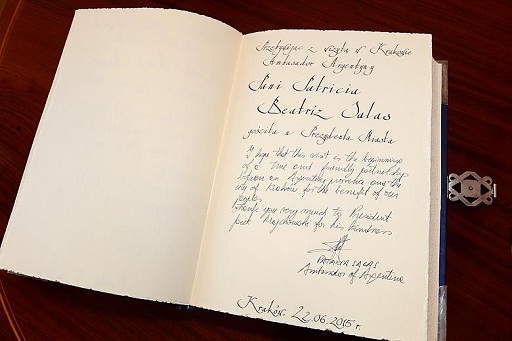 Przebywając z wizytą w Krakowie
Ambasador Argentyny
Pani Patricia
Beatriz Salas
gościła u Prezydenta Miasta
I hope that this visit is the beginning
of a true and friendly partnership
between an Argentine province and the
city of Krakow for the benefit of our
peoples.
Thank you very much to President
Jacek Majchrowski for his kindness
PATRICIA SALAS
Ambassador of Argentine
Kraków, 22.06.2015 r.